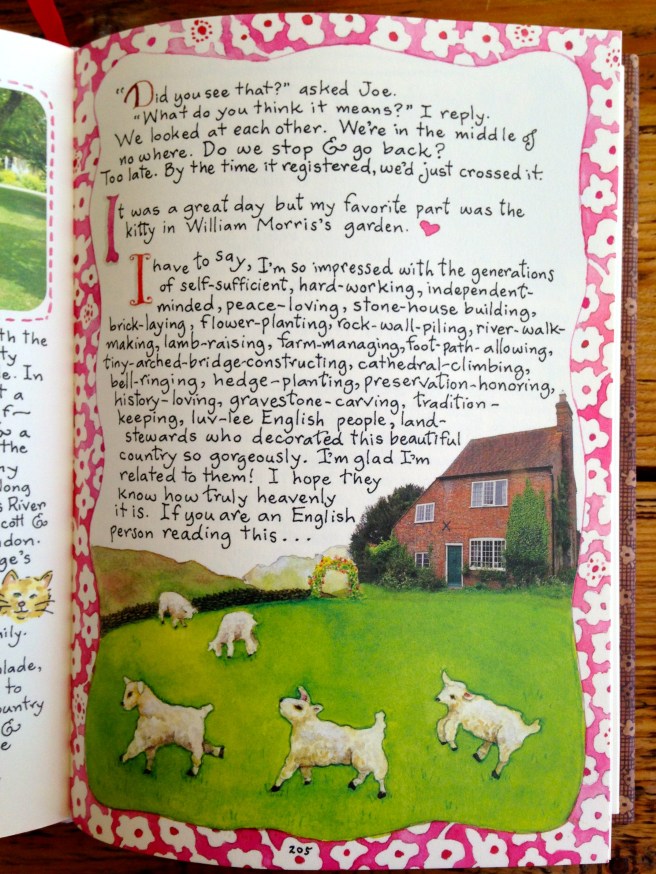 th the
ty
e. In
t a
f~
& a
the
ny
long
s River
cott &
ndon.
ge's
ily.
lade,
to
ountry
&
e
"Did you see that?" asked Joe.
"What do you think it means?" I reply.
We looked at each other. We're in the middle of
no where. Do we stop & go back?
Too late. By the time it registered, we'd just crossed it.
It was a great day but my favorite part was the
kitty in William Morris's garden.
I have to say, I'm so impressed with the generations
of self-sufficient, hard-working, independent-
minded, peace-loving, stone-house building,
brick-laying, flower-planting, rock-wall-piling, river-walk-
making, lamb-raising, farm-managing, foot-path-allowing,
tiny-arched-bridge-constructing, cathedral-climbing,
bell-ringing, hedge-planting, preservation-honoring,
history-loving, gravestone-carving, tradition-
keeping, luv-lee English people, land-
stewards who decorated this beautiful
country so gorgeously. I'm glad I'm
related to them! I hope they
know how truly heavenly
it is. If you are an English
person reading this...
205